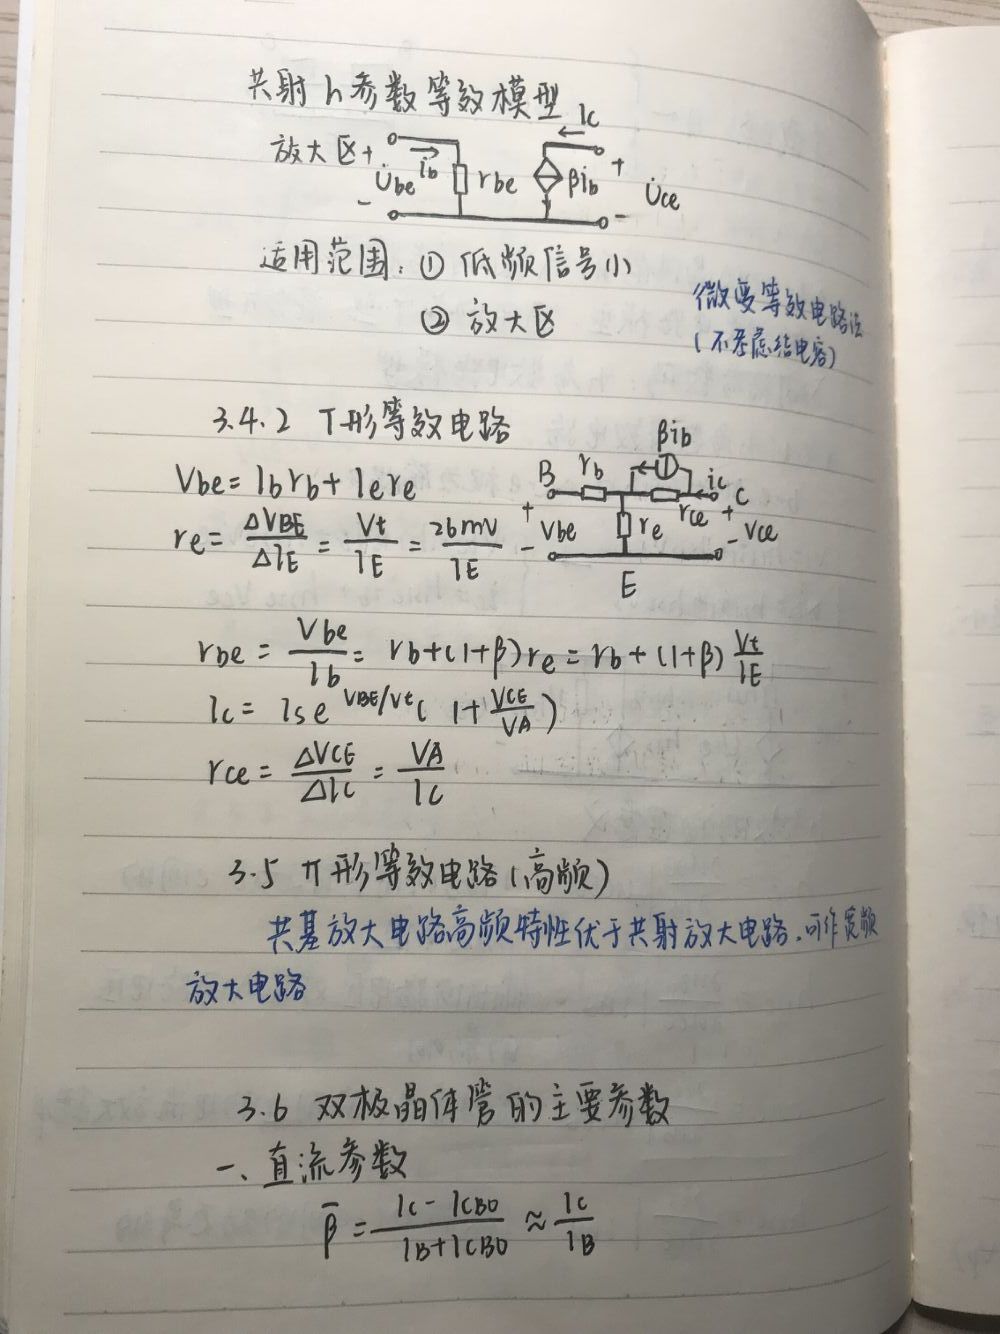 共射h参数等效模型
Ic
放大区 + U̇be - ib rbe βib + U̇ce -
适用范围：① 低频信号小
② 放大区
微变等效电路法
(不考虑结电容)
3.4.2 T形等效电路
βib
B rb ic C
Vbe = Ib rb + Ie re
+ Vbe - re rce + Vce -
re = ΔVBE/ΔIE = Vt/IE = 26mV/IE
E
rbe = Vbe/Ib = rb+(1+β)re = rb+(1+β)Vt/IE
Ic = Is e^VBE/Vt (1+VCE/VA)
rce = ΔVCE/ΔIC = VA/IC
3.5 π形等效电路(高频)
共基放大电路高频特性优于共射放大电路,可作宽频
放大电路
3.6 双极晶体管的主要参数
一、直流参数
β̄ = IC-ICBO/IB+ICBO ≈ IC/IB